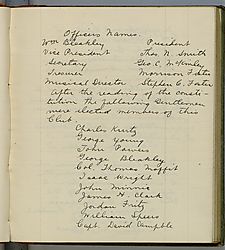 Officers Names.
Wm Bleakley President
Vice President Thos. A. Smith
Secretary Geo. C. McKinley
Treasurer Morrison Foster
Musical Director Stephen C. Foster
After the reading of the consti-
tution the following Gentlemen
were elected members of this
Club.
Charles Kurtz
George Young
John Powers
George Bleakley
Col. Thomas Moffit
Isaac Wright
John Minnis
James H. Clark
Jordan Fritz
William Speers
Capt. David Campble